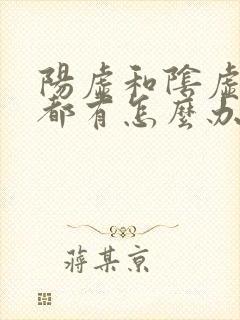 陽虛和陰虛
都有怎麼办
蔣某京